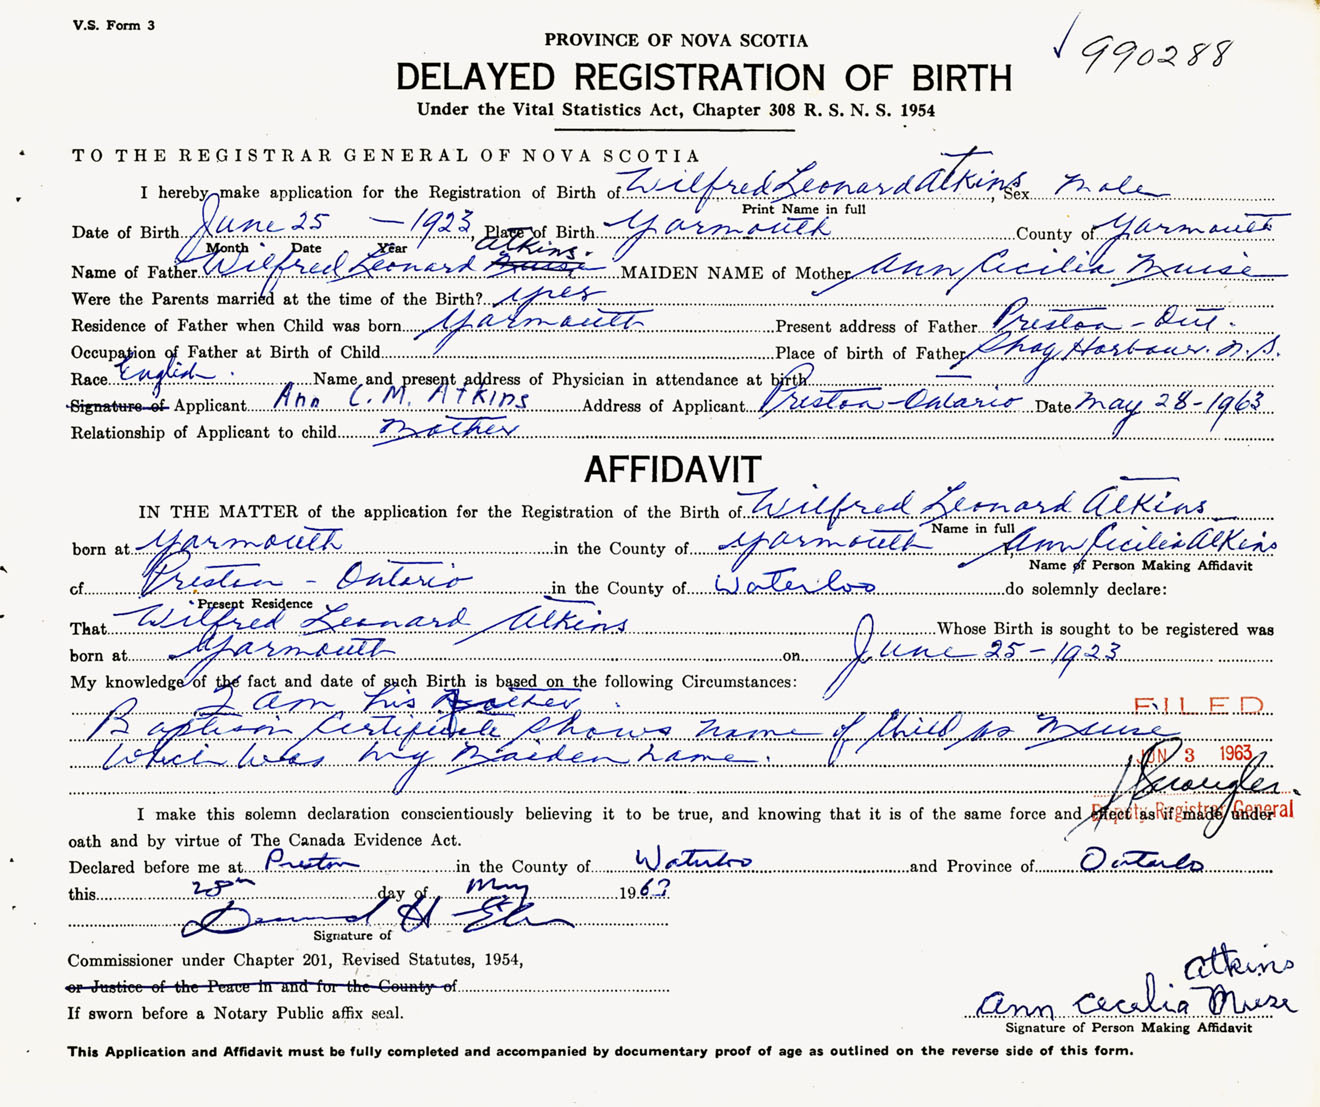 V.S. Form 3
990288
PROVINCE OF NOVA SCOTIA
DELAYED REGISTRATION OF BIRTH
Under the Vital Statistics Act, Chapter 308 R. S. N. S. 1954
TO THE REGISTRAR GENERAL OF NOVA SCOTIA
I hereby make application for the Registration of Birth of Wilfred Leonard Atkins, Sex Male
Print Name in full
Date of Birth June 25 - 1923, Place of Birth Yarmouth County of Yarmouth
Month Date Year Atkins.
Name of Father Wilfred Leonard Muise MAIDEN NAME of Mother Ann Cecilia Muise
Were the Parents married at the time of the Birth? Yes
Residence of Father when Child was born Yarmouth Present address of Father Preston - Ont.
Occupation of Father at Birth of Child Place of birth of Father Shag Harbour. N.S.
Race English. Name and present address of Physician in attendance at birth —
Signature of Applicant Ann C. M. Atkins Address of Applicant Preston - Ontario Date May 28 - 1963
Relationship of Applicant to child Mother
AFFIDAVIT
IN THE MATTER of the application for the Registration of the Birth of Wilfred Leonard Atkins
Name in full
born at Yarmouth in the County of Yarmouth I, Ann Cecilia Atkins
Name of Person Making Affidavit
of Preston - Ontario in the County of Waterloo do solemnly declare:
Present Residence
That Wilfred Leonard Atkins Whose Birth is sought to be registered was
born at Yarmouth on June 25 - 1923
My knowledge of the fact and date of such Birth is based on the following Circumstances:
I am his Mother.
FILED
Baptism Certificate shows name of Child as Muise
which was my Maiden name.
JUN 3 1963
I make this solemn declaration conscientiously believing it to be true, and knowing that it is of the same force and effect as if made under
Deputy Registrar General
oath and by virtue of The Canada Evidence Act.
Declared before me at Preston in the County of Waterloo and Province of Ontario
this 28th day of May 1963
Signature of
Commissioner under Chapter 201, Revised Statutes, 1954,
or Justice of the Peace in and for the County of
If sworn before a Notary Public affix seal.
Atkins
Ann Cecelia Muise
Signature of Person Making Affidavit
This Application and Affidavit must be fully completed and accompanied by documentary proof of age as outlined on the reverse side of this form.